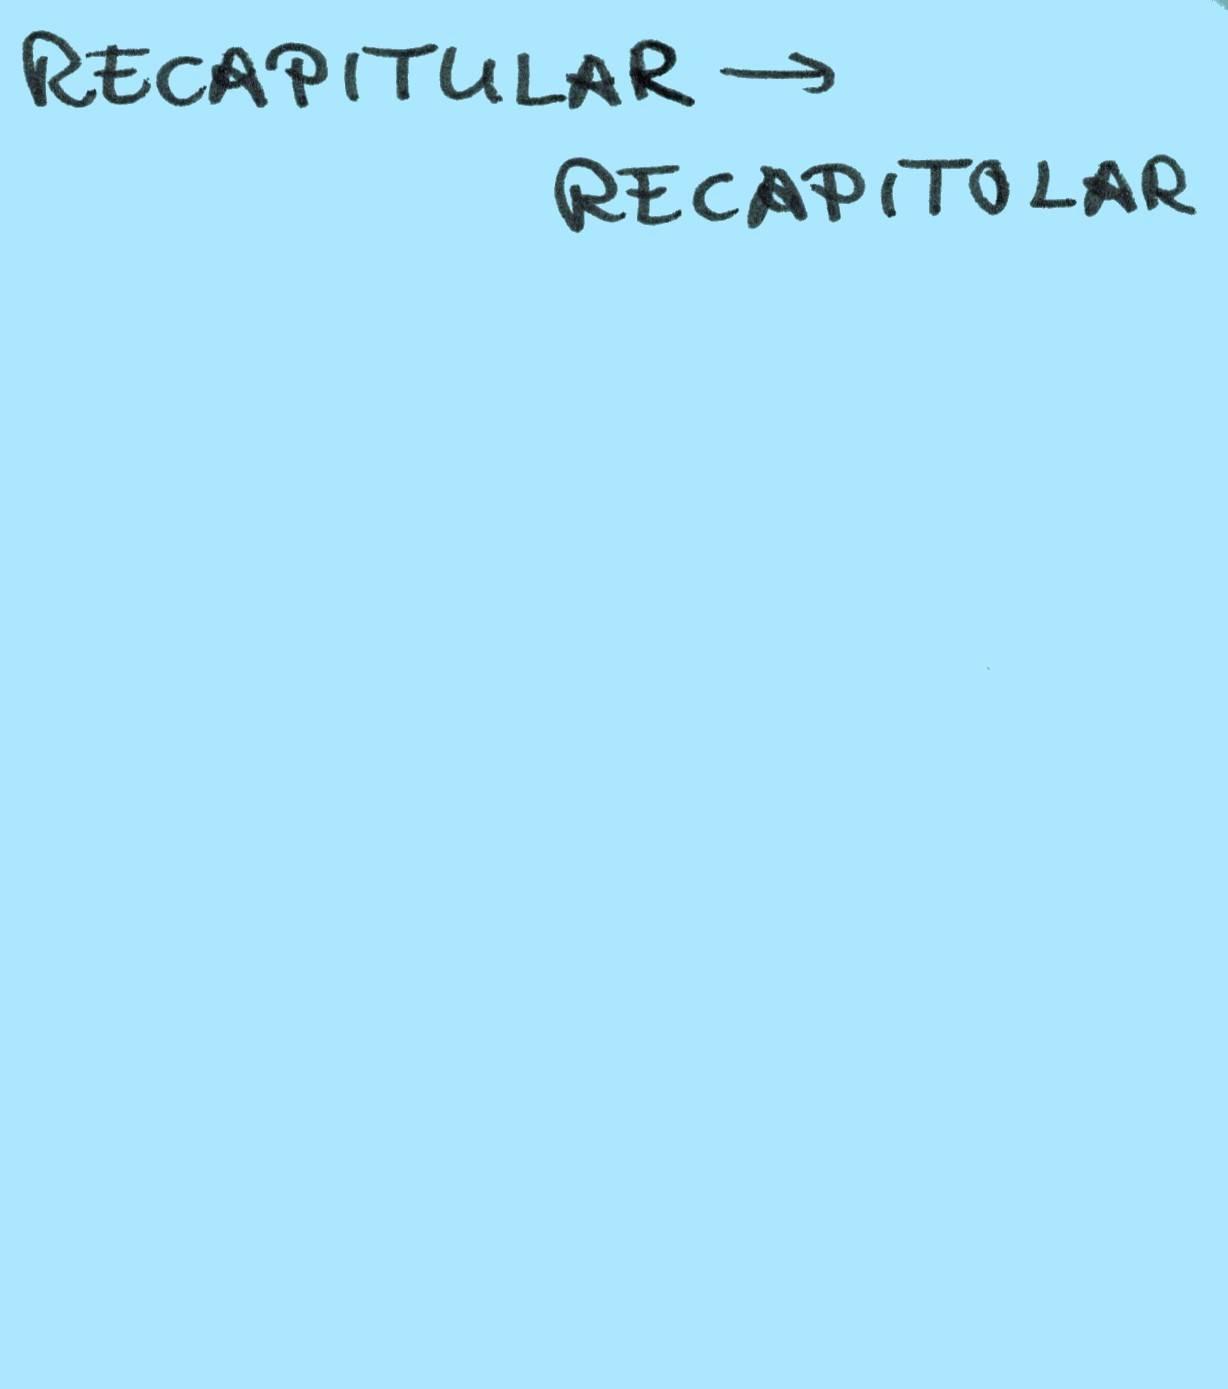 RECAPITULAR →
RECAPITOLAR